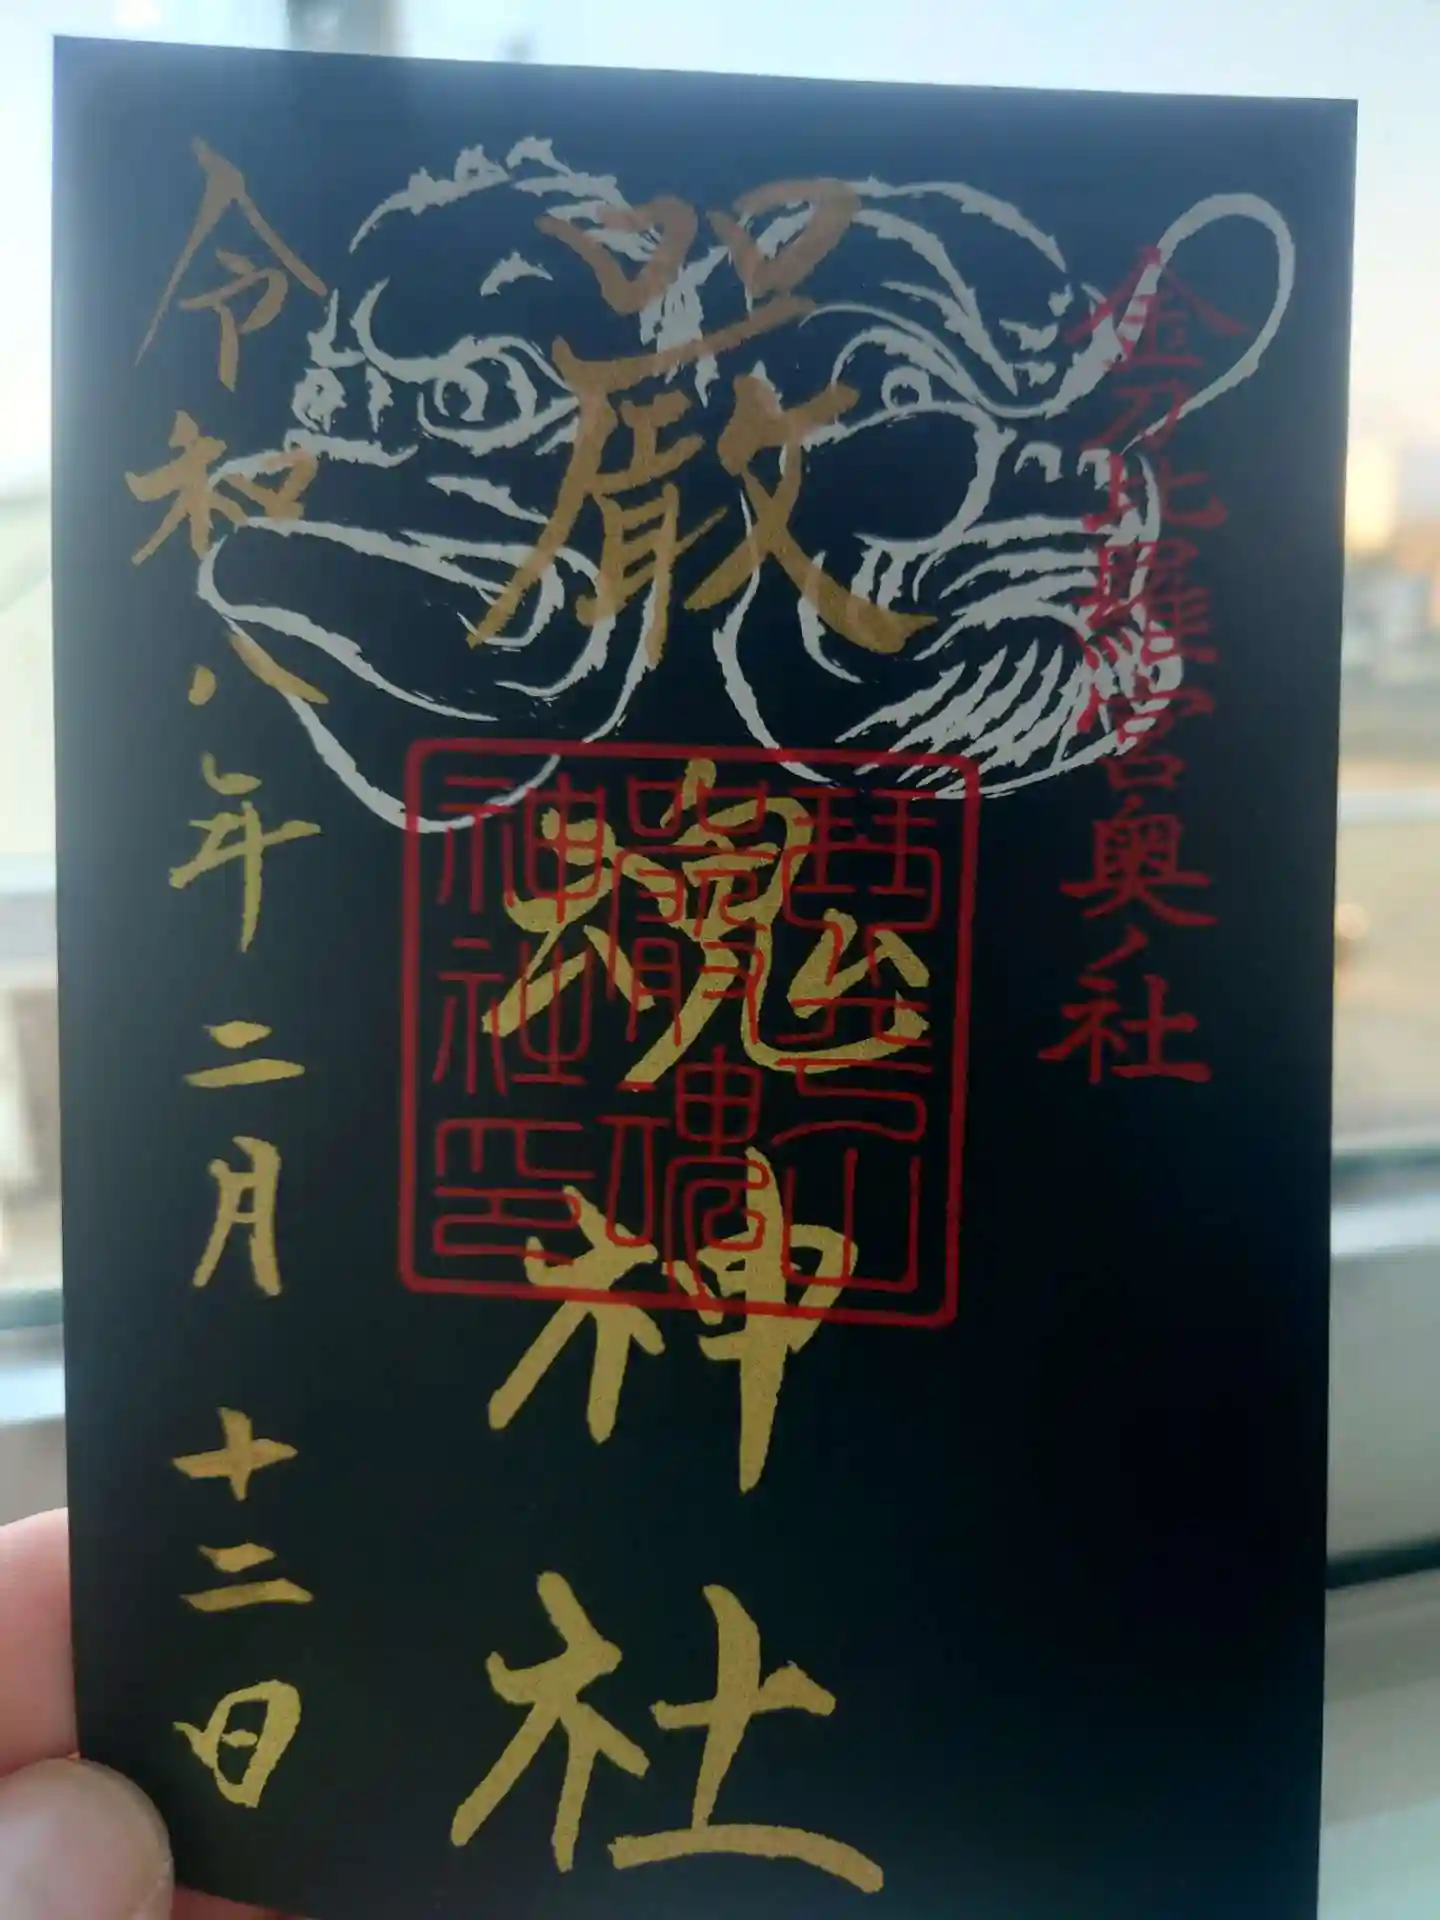 金刀比羅宮奥ノ社
嚴魂神社
琴平山
嚴魂
神社印
令和八年二月十二日